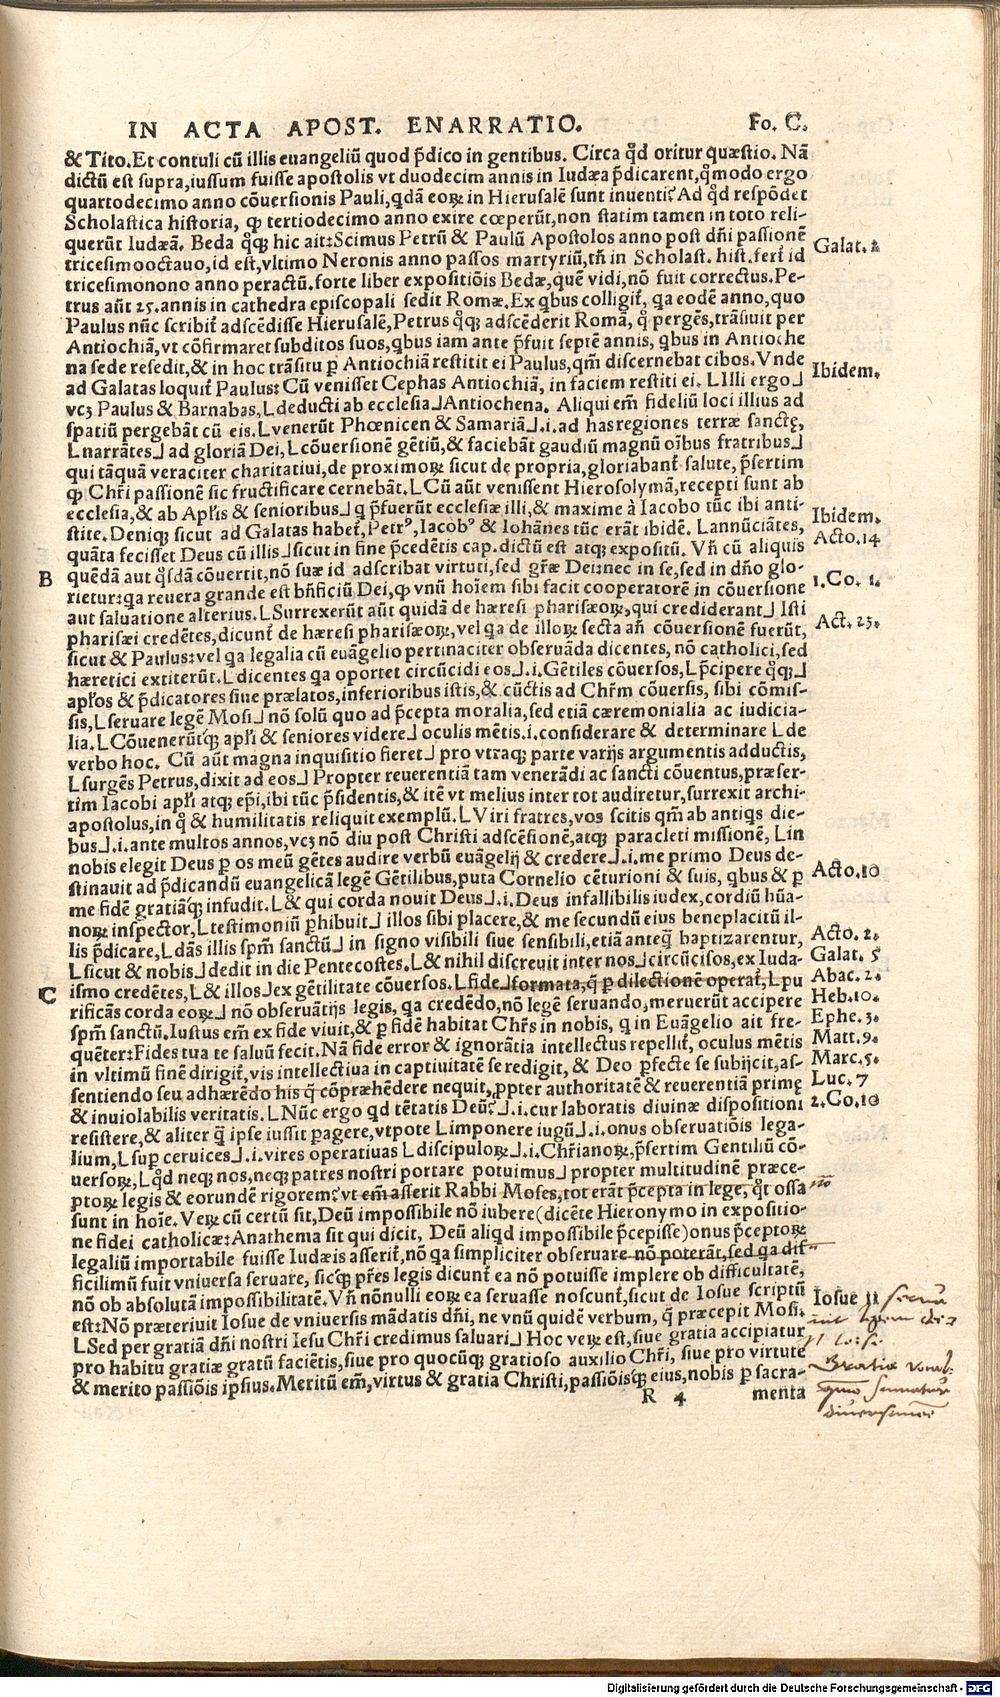 IN ACTA APOST. ENARRATIO. Fo. C.
& Tito. Et contuli cū illis euangeliū quod p̄dico in gentibus. Circa qd̓ oritur quæstio. Nā
dictū est supra, iussum fuisse apostolis vt duodecim annis in Iudæa p̄dicarent, qūomodo ergo
quartodecimo anno cōuersionis Pauli, qdā eoꝝ in Hierusalē sunt inuenti? Ad qd̓ respōdet
Scholastica historia, ꝙ tertiodecimo anno exire cœperūt, non statim tamen in toto reli-
querūt Iudæā. Beda qꝫ hic ait: Scimus Petrū & Paulū Apostolos anno post dn̄i passionē
Galat. 2
tricesimooctauo, id est, vltimo Neronis anno passos martyriū, tn̄ in Scholast. hist. fert᷑ id
tricesimonono anno peractū. forte liber expositiōis Bedæ, quē vidi, nō fuit correctus. Pe-
trus aūt 25. annis in cathedra episcopali sedit Romæ. Ex qbus colligit᷑, qa eodē anno, quo
Paulus nūc scribit᷑ adscēdisse Hierusalē, Petrus qꝫ adscēderit Romā, q̓ pergēs, trāsiuit per
Antiochiā, vt cōfirmaret subditos suos, qbus iam ante p̄fuit septē annis, qbus in Antioche
na sede resedit, & in hoc trāsitu ꝑ Antiochiā restitit ei Paulus, qm̄ discernebat cibos. Vnde
ad Galatas loquit᷑ Paulus: Cū venisset Cephas Antiochiā, in faciem restiti ei. ⌊Illi ergo⌋
Ibidem.
vcꝫ Paulus & Barnabas, ⌊deducti ab ecclesia⌋ Antiochena. Aliqui em̄ fideliū loci illius ad
spatiū pergebāt cū eis. ⌊venerūt Phœnicen & Samariā⌋ .i. ad has regiones terræ sanctę,
⌊narrātes⌋ ad gloriā Dei, ⌊cōuersionē gētiū, & faciebāt gaudiū magnū oībus fratribus⌋
qui tāquā veraciter charitatiui, de proximoꝝ sicut de propria, gloriabant᷑ salute, p̄sertim
ꝙ Chr̄i passionē sic fructificare cernebāt. ⌊Cū aūt venissent Hierosolymā, recepti sunt ab
ecclesia, & ab Apl̄is & senioribus⌋ q p̄fuerūt ecclesiæ illi, & maxime à Iacobo tūc ibi anti-
Ibidem.
stite. Deniqꝫ sicut ad Galatas habet᷑, Petrꝰ, Iacobꝰ & Iohānes tūc erāt ibidē. ⌊annūciātes,
Acto. 14
quāta fecisset Deus cū illis⌋ sicut in fine p̄cedētis cap. dictū est atqꝫ expositū. Vn̄ cū aliquis
B quēdā aut qsdā cōuertit, nō suæ id adscribat virtuti, sed gr̄æ Dei: nec in se, sed in dn̄o glo-
1. Co. 1.
rietur: qa reuera grande est bn̄ficiū Dei, ꝙ vnū hoīem sibi facit cooperatorē in cōuersione
aut saluatione alterius. ⌊Surrexerūt aūt quidā de hæresi pharisæoꝝ, qui crediderant⌋ Isti
Act. 23.
pharisæi credētes, dicunt᷑ de hæresi pharisæoꝝ, vel qa de illoꝝ secta an̄ cōuersionē fuerūt,
sicut & Paulus: vel qa legalia cū euāgelio pertinaciter obseruāda dicentes, nō catholici, sed
hæretici extiterūt. ⌊dicentes qa oportet circūcidi eos⌋ .i. Gētiles cōuersos, ⌊p̄cipere qꝫ⌋
apl̄os & p̄dicatores siue prælatos, inferioribus istis, & cūctis ad Chr̄m cōuersis, sibi cōmis-
sis, ⌊seruare legē Mosi⌋ nō solū quo ad p̄cepta moralia, sed etiā cæremonialia ac iudicia-
lia. ⌊Cōuenerūtqꝫ apl̄i & seniores videre⌋ oculis mētis .i. considerare & determinare ⌊de
verbo hoc. Cū aūt magna inquisitio fieret⌋ pro vtraqꝫ parte varijs argumentis adductis,
⌊surgēs Petrus, dixit ad eos⌋ Propter reuerentiā tam venerādi ac sancti cōuentus, præser-
tim Iacobi apl̄i atqꝫ ep̄i, ibi tūc p̄sidentis, & itē vt melius inter tot audiretur, surrexit archi-
apostolus, in q̓ & humilitatis reliquit exemplū. ⌊Viri fratres, vos scitis qm̄ ab antiqs die-
bus⌋ .i. ante multos annos, vcꝫ nō diu post Christi adscēsionē, atqꝫ paracleti missionē, ⌊in
nobis elegit Deus ꝑ os meū gētes audire verbū euāgelij & credere⌋ .i. me primo Deus de-
stinauit ad p̄dicandū euangelicā legē Gētilibus, puta Cornelio cēturioni & suis, qbus & ꝑ
Acto. 10
me fidē gratiāqꝫ infudit. ⌊& qui corda nouit Deus⌋ .i. Deus infallibilis iudex, cordiū hūa-
noꝝ inspector, ⌊testimoniū ꝑhibuit⌋ illos sibi placere, & me secundū eius beneplacitū il-
lis p̄dicare, ⌊dās illis spm̄ sanctū⌋ in signo visibili siue sensibili, etiā anteq̄ baptizarentur,
Acto. 2.
⌊sicut & nobis⌋ dedit in die Pentecostes. ⌊& nihil discreuit inter nos⌋ circūcisos, ex Iuda-
Galat. 5
C ismo credētes, ⌊& illos⌋ ex gētilitate cōuersos. ⌊fide⌋ formata, q̄ ꝑ dilectionē operat᷑, ⌊pu
Abac. 2.
rificās corda eoꝝ⌋ nō obseruātijs legis, qa credēdo, nō legē seruando, meruerūt accipere
Heb. 10.
spm̄ sanctū. Iustus em̄ ex fide viuit, & ꝑ fidē habitat Chr̄s in nobis, q in Euāgelio ait fre-
Ephe. 3.
quēter: Fides tua te saluū fecit. Nā fide error & ignorātia intellectus repellit᷑, oculus mētis
Matt. 9.
in vltimū finē dirigit᷑, vis intellectiua in captiuitatē se redigit, & Deo ꝑfecte se subijcit, as-
Marc. 5.
sentiendo seu adhærēdo his q̄ cōpræhēdere nequit, ꝓpter authoritatē & reuerentiā primę
Luc. 7
& inuiolabilis veritatis. ⌊Nūc ergo qd tētatis Deū?⌋ .i. cur laboratis diuinæ dispositioni
2. Co. 10
resistere, & aliter q̄ ipse iussit ꝑagere, vtpote ⌊imponere iugū⌋ .i. onus obseruatiōis lega-
lium, ⌊suꝑ ceruices⌋ .i. vires operatiuas ⌊discipuloꝝ⌋ .i. Chr̄ianoꝝ, p̄sertim Gentiliū cō-
uersoꝝ, ⌊qd̓ neqꝫ nos, neqꝫ patres nostri portare potuimus⌋ propter multitudinē præce-
ptoꝝ legis & eorundē rigorem? vt em̄ asserit Rabbi Moses, tot erāt p̄cepta in lege, qt̓ ossa
sunt in hoīe. Veꝝ cū certū sit, Deū impossibile nō iubere (dicēte Hieronymo in expositio-
ne fidei catholicæ: Anathema sit qui dicit, Deū aliqd impossibile p̄cepisse) onus p̄ceptoꝝ
legaliū importabile fuisse Iudæis asserit᷑, nō qa simpliciter obseruare nō poterāt, sed qa dif
ficilimū fuit vniuersa seruare, sicqꝫ pr̄es legis dicunt᷑ ea nō potuisse implere ob difficultatē,
nō ob absolutā impossibilitatē. Vn̄ nōnulli eoꝝ ea seruasse noscunt᷑, sicut de Iosue scriptū
Iosue 11
est: Nō præteriuit Iosue de vniuersis mādatis dn̄i, ne vnū quidē verbum, q̄ præcepit Mosi.
⌊Sed per gratiā dn̄i nostri Iesu Chr̄i credimus saluari⌋ Hoc veꝝ est, siue gratia accipiatur
pro habitu gratiæ gratū faciētis, siue pro quocūqꝫ gratioso auxilio Chr̄i, siue pro virtute
& merito passiōis ipsius. Meritū em̄, virtus & gratia Christi, passiōisqꝫ eius, nobis ꝑ sacra-
R 4 menta